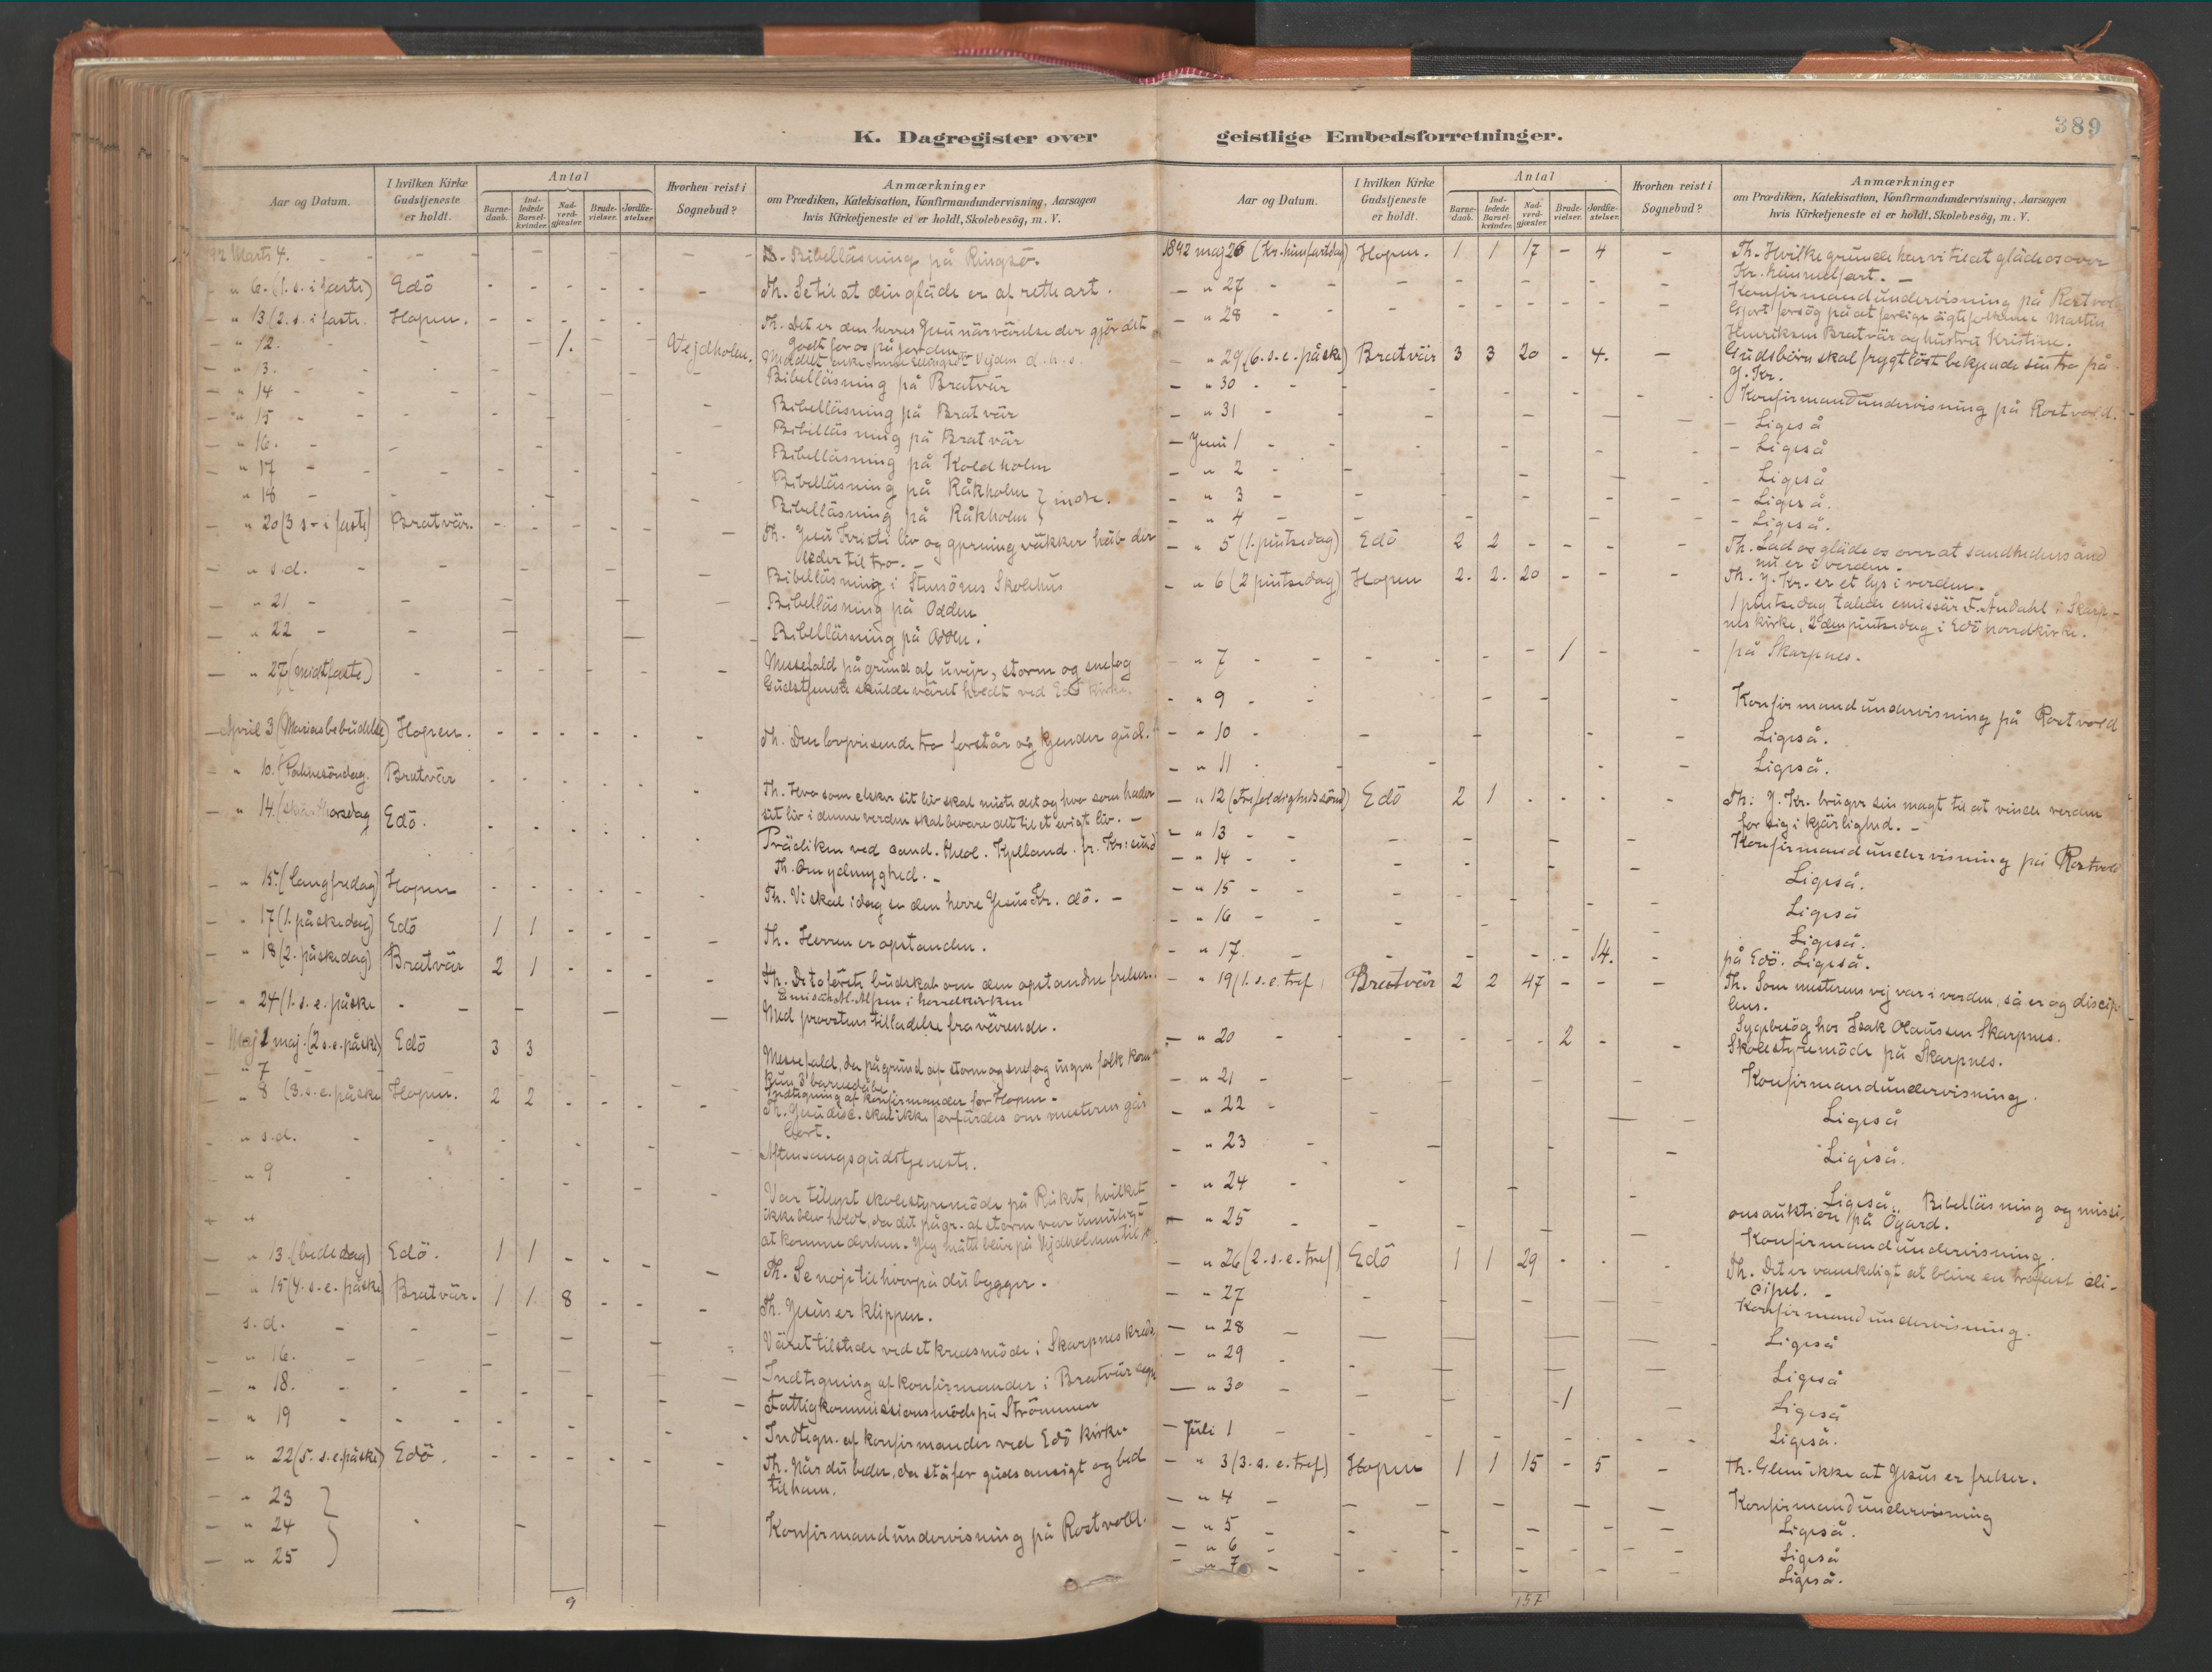 389
K. Dagregister over geistlige Embedsforretninger.
Aar og Datum.
I hvilken Kirke Gudstjeneste er holdt.
Antal
Barnedaab.
Indledede Barselkvinder.
Nadverdgjæster.
Brudevielser.
Jordfæstelser.
Hvorhen reist i Sognebud?
Anmærkninger
om Prædiken, Katekisation, Konfirmandundervisning, Aarsagen
hvis Kirketjeneste ei er holdt, Skolebesög, m. V.
92 Marts 4. - - - - - - - Bibelläsning på Ringsö.
" 6. (1. s. i faste) Edö - - - - - - Th. Se til at din gläde er af rette art.
" 13. (2. s. i faste. Hopen. - - - - - Th. Det er den herres Jesu närvärelse der gjör det
godt for os på jorden
" 12. - - 1. - Vejdholm.
" 13. - Bibelläsning på Bratvär
" 14 - Bibelläsning på Bratvär
" 15 - Bibelläsning på Bratvär
" 16. - Bibelläsning på Koldholm
" 17 - Bibelläsning på Råkholm } indre.
" 18 - Bibelläsning på Råkholm }
" 20 (3 s. i faste) Bratvär. - - - - - - Th. Jesu Kristi liv og gjerning väkker håb der
leder til tro. -
" s.d. - Bibelläsning i Stensönes Skolehus
" 21 - Bibelläsning på Odden
" 22 - Bibelläsning på Odden.
" 27 (midtfaste) - Messefald på grund af uvejr, storm og snefog
Gudstjeneste skulde väret holdt ved Edö kirke.
April 3 (Mariasbebudelse) Hopen. - - - - - - Th. Den lovprisende tro forstår og kjender gud.
" 10. (Palmesöndag. Bratvär - - - - - - Th. Hvo som elsker sit liv skal miste det og hvo som hader
sit liv i denne verden skal bevare det til et evigt liv. -
" 14. (skjär thorsdag Edö. - - - - - - Prädiken ved cand. theol. Kjelland. fr. Kr:sund
Th. Om ydmyghed. -
" 15. (langfredag) Hopen - - - - - - Th. Vi skal idag se den herre Jesus Kr. dö. -
" 17 (1. påskedag) Edö 1 1 - - - - Th. Herren er opstanden.
" 18 (2. påskedag) Bratvär 2 1 - - - - Th. De to förste budskab om den opstandne frelser.
" 24 (1. s. e. påske - - - - - Med provstens tilladelse fraværende.
Maj 1 maj. (2 s. e. påske) Edö 3 3 Messefald, da på grund af storm og snefog ingen folk kom
kun 3 barnedåbe
" 7 - Indtegning af konfirmander for Hopen -
" 8 (3. s. e. påske Hopen. 2 2 - - - - Th. Jesu disc. skal ikke forfärdes om mesteren går
bort.
" s.d. - Aftensangsgudstjeneste.
" 9 - Var tillyst skolestyremöde på Råket, hvilket
ikke blev holdt, da det på gr. af storm var umuligt
at komme derhen. Jeg måtte blive på Vejdholmen til
" 13. (bededag) Edö. 1 1 - - - - Th. Se nöje til hvorpå du bygger.
" 15 (4. s. e. påske) Bratvär. 1 1 8 - - - Th. Jesus er klippen.
s. d. - Väret tilstede ved et kredsmöde i Skarpnes kreds
" 16. - Indtegning af konfirmander i Bratvär sogn
" 18. - Fattigkommissionsmöde på Strömmen
" 19 - Indtegn. af konfirmander ved Edö kirke.
" 22 (5. s. e. påske) Edö. - - - - - - Th. Når du beder, da stå for guds ansigt og bed
til ham.
" 23 }
" 24 } Konfirmandundervisning på Rostvold.
" 25 }
9
Aar og Datum.
I hvilken Kirke Gudstjeneste er holdt.
Antal
Barnedaab.
Indledede Barselkvinder.
Nadverdgjæster.
Brudevielser.
Jordfæstelser.
Hvorhen reist i Sognebud?
Anmærkninger
om Prædiken, Katekisation, Konfirmandundervisning, Aarsagen
hvis Kirketjeneste ei er holdt, Skolebesög, m. V.
1892 maj 26 (Kr. himfartsdag) Hopen. 1 1 17 - 4 - Th. Hvilke grunde har vi til at gläde os over
Kr. himmelfart. -
" 27 - Konfirmandundervisning på Rostvold
" 28 - Gjort forsög på at forlige ägtefolkene Martin
Henriksen Bratvär og hustru Kristine.
" 29 (6. s. e. påske) Bratvär 3 3 20 - 4. - Gudsbörn skal frygtlöst bekjende sin tro på
J. Kr.
" 30 - Konfirmandundervisning på Rostvold.
" 31 - Ligeså
Juni 1 - Ligeså
" 2 - Ligeså
" 3 - Ligeså.
" 4 - Ligeså.
" 5 (1. pintsedag) Edö 2 2 - - - - Th. Lad os gläde os over at sandhedens ånd
nu er i verden.
" 6 (2 pintsedag) Hopen 2. 2. 20 - - - Th. J. Kr. er et lys i verden.
1 pintsedag talede emissär F. Åndahl i Skarp-
nes kirke, 2den pintsedag i Edö hovedkirke.
" 7 - 1 - på Skarpnes.
" 9 - Konfirmandundervisning på Rostvold
" 10 - Ligeså.
" 11 - Ligeså.
" 12 (Trefoldighedssönd) Edö 2 1 - - - - Th: J. Kr. bruger sin magt til at vinde verden
for sig i kjärlighed. -
" 13 - Konfirmandundervisning på Rostvold
" 14 - Ligeså.
" 15 - Ligeså
" 16 - Ligeså.
" 17. - 14. - på Edö. Ligeså.
" 19 (1. s. e. tref. Bratvär 2 2 47 - - - Th. Som mesterens vej var i verden, så er og discip-
lens.
Sygebesög hos Isak Olaussen Skarpnes.
" 20 - 2 - Skolestyremöde på Skarpnes.
" 21 - Konfirmandundervisning.
" 22 - Ligeså
" 23 - Ligeså.
" 24 - Ligeså. Bibelläsning og missi-
onsauktion på Ögard.
" 25 - Konfirmandundervisning.
" 26 (2. s. e. tref) Edö 1 1 29 - - - Th. Det er vanskeligt at blive en trofast di-
cipel. -
" 27 - Konfirmandundervisning.
" 28 - Ligeså
" 29 - Ligeså
" 30 - 1 - Ligeså
Juli 1 - Ligeså.
" 3 (3. s. e. tref) Hopen 1 1 15 - 5 - Th. Glem ikke at Jesus er frelser.
" 4 - Konfirmandundervisning
" 5 - Ligeså.
" 6 - Ligeså
" 7 - Ligeså.
157